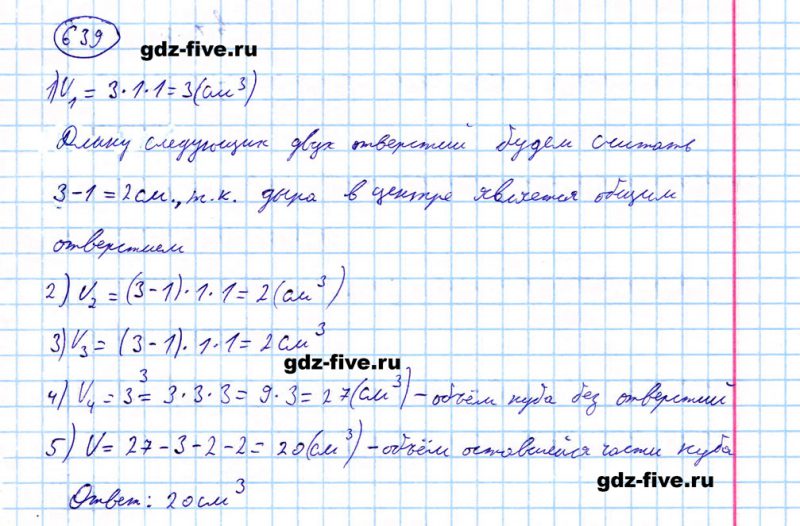 639
gdz-five.ru
1) V₁ = 3·1·1 = 3 (см³)
Длину следующих двух отверстий будем считать
3-1=2см., т.к. дыра в центре является общим
отверстием
2) V₂ = (3-1)·1·1 = 2 (см³)
3) V₃ = (3-1)·1·1 = 2см³
gdz-five.ru
4) V₄ = 3³ = 3·3·3 = 9·3 = 27 (см³) - объём куба без отверстий
5) V = 27-3-2-2 = 20 (см³) - объём оставшейся части куба
gdz-five.ru
Ответ: 20см³